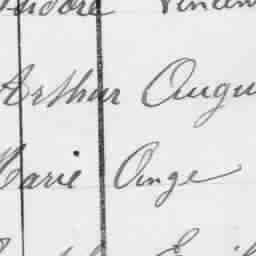 Isidore Vincent
Arthur Augu
Marie Ange